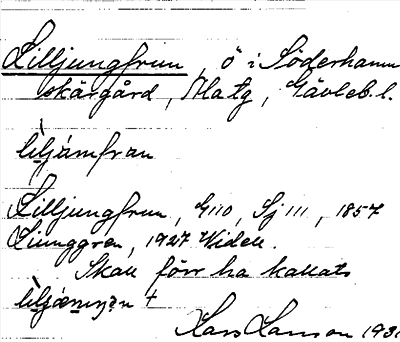 Lilljungfrun, ö i Söderhamns
skärgård, Alatg, Gävleb. l.
liljamfran
Lilljungfrun, G110, Sj 111, 1857
Ljunggren, 1927 Widell.
Skall förr ha kallats
Lars Larsson 193